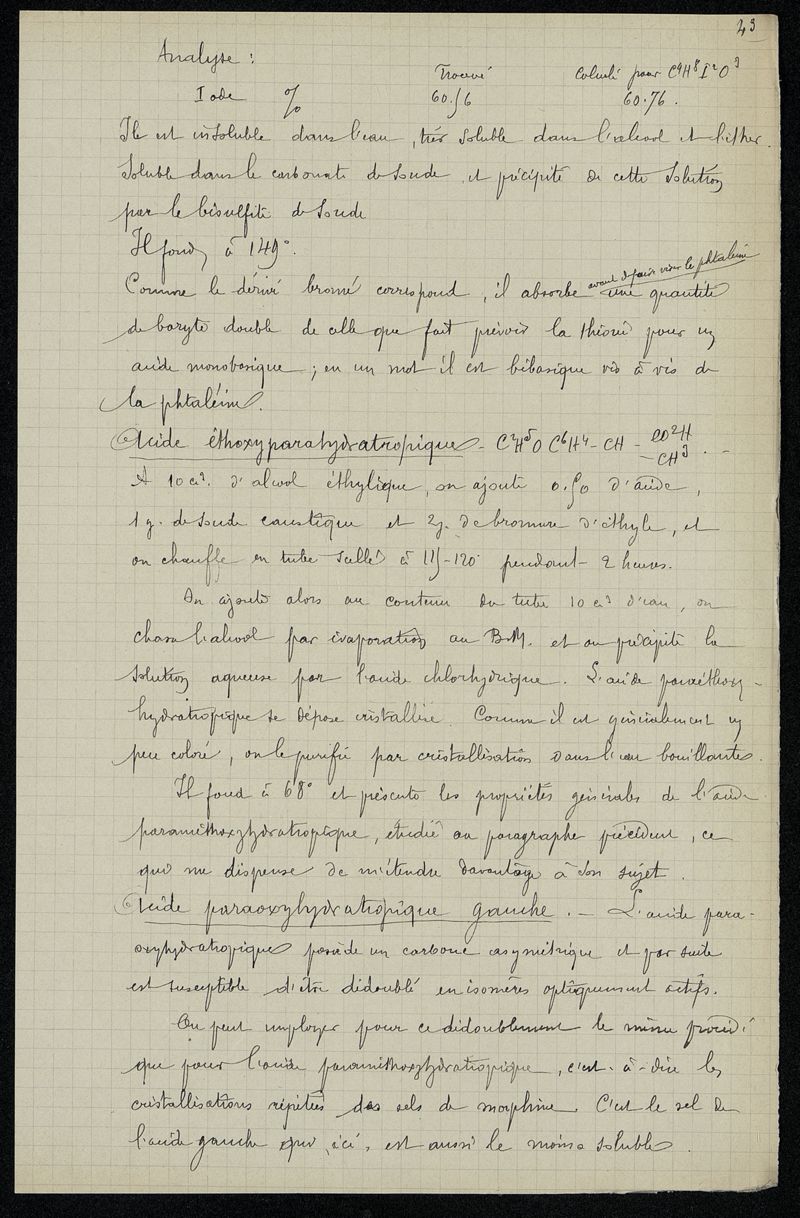 43
Analyse :
Trouvé Calculé pour C⁹H⁸I²O³
Iode % 60.56 60.76.
Il est insoluble dans l'eau, très soluble dans l'alcool et l'éther.
Soluble dans le carbonate de soude, et précipité de cette solution
par le bisulfite de soude
Il fond à 149°.
avant de faire virer la phtaléine
Comme le dérivé bromé correspond, il absorbe une quantité
de baryte double de celle que fait prévoir la théorie pour un
acide monobasique ; en un mot il est bibasique vis à vis de
la phtaléine.
Acide éthoxyparahydratropique - C²H⁵O C⁶H⁴ - CH - CO²H
- CH³ . -
A 10 cc³. d'alcool éthylique, on ajoute 0.50 d'acide,
1 g. de soude caustique et 2g. de bromure d'éthyle, et
on chauffe en tube scellé à 115-120° pendant 2 heures.
On ajoute alors au contenu du tube 10 cc³ d'eau, on
chasse l'alcool par évaporation au B.M. et on précipite la
solution aqueuse par l'acide chlorhydrique. L'acide paraéthoxy-
hydratropique se dépose cristallisé. Comme il est généralement un
peu coloré, on le purifie par cristallisation dans l'eau bouillante.
Il fond à 68° et présente les propriétés générales de l'acide
paraméthoxyhydratropique, étudié au paragraphe précédent, ce
qui me dispense de m'étendre davantage à son sujet.
Acide paraoxyhydratropique gauche. - L'acide para-
oxyhydratropique possède un carbone asymétrique et par suite
est susceptible d'être dédoublé en isomères optiquement actifs.
On peut employer pour ce dédoublement le même procédé
que pour l'acide paraméthoxyhydratropique, c'est-à-dire les
cristallisations répétées des sels de morphine. C'est le sel de
l'acide gauche qui, ici, est aussi le moins soluble.